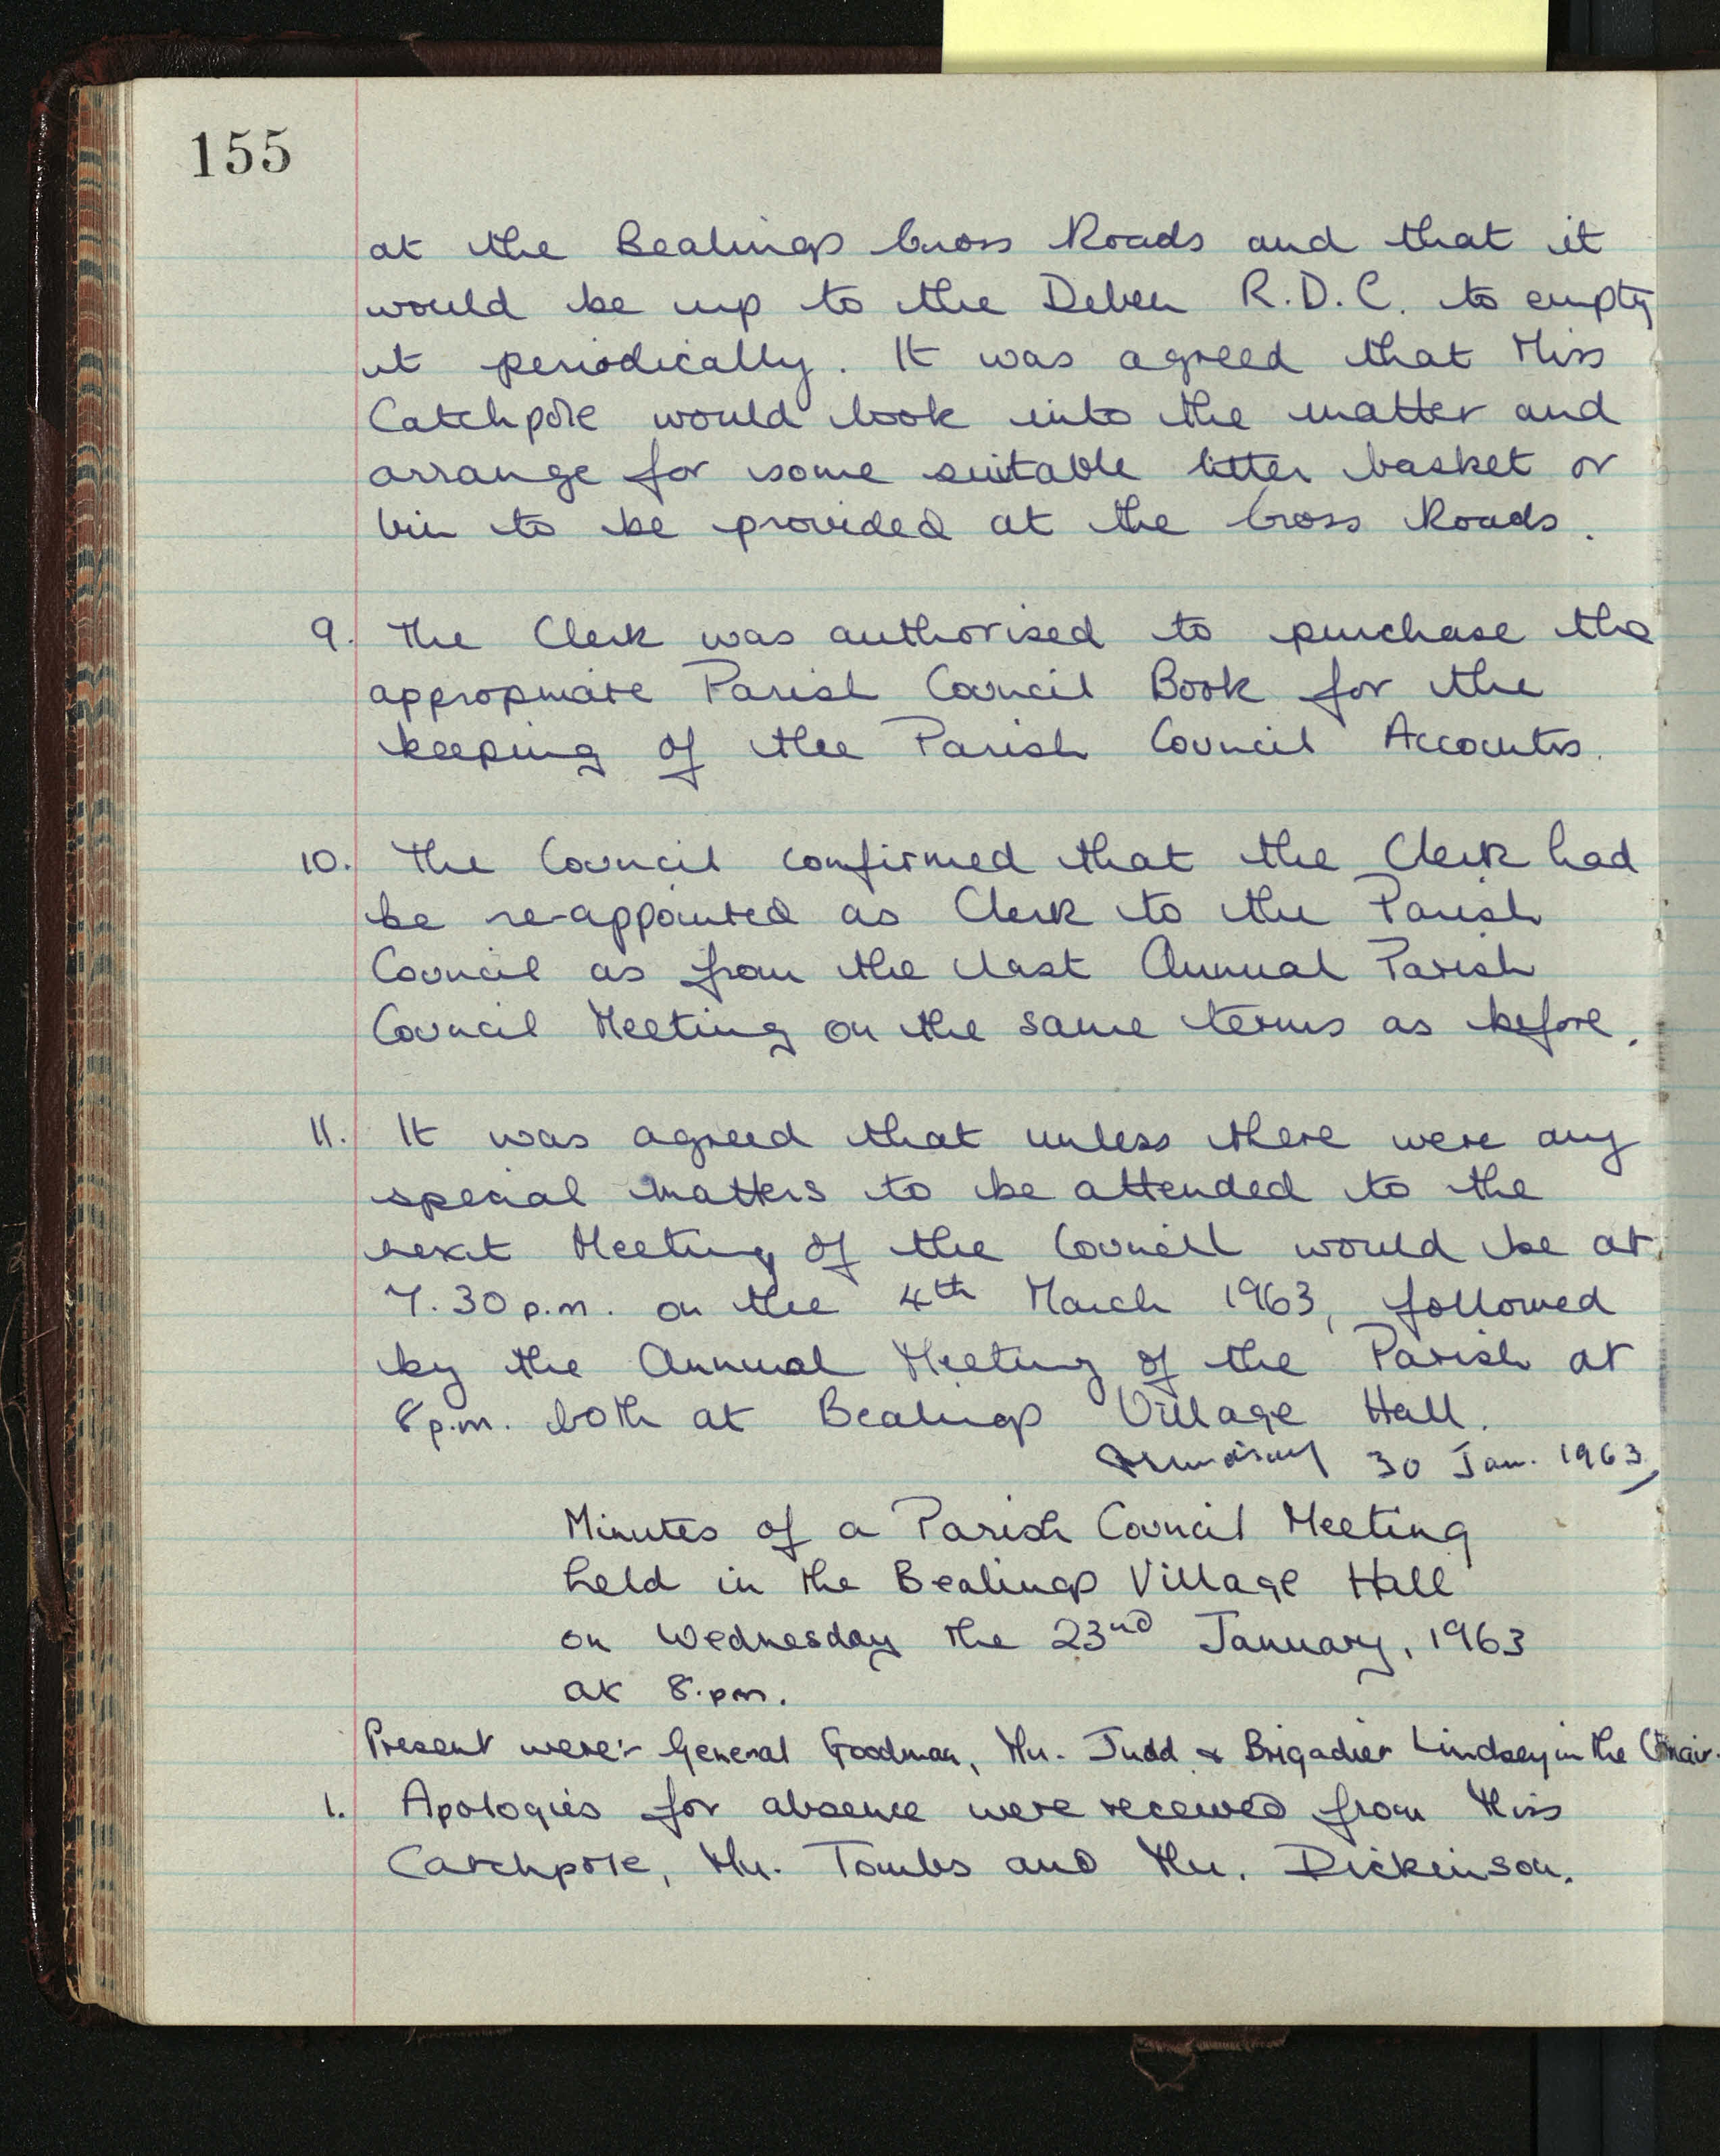 155
at the Bealings Cross Roads and that it
would be up to the Deben R.D.C. to empty
it periodically. It was agreed that Miss
Catchpole would look into the matter and
arrange for some suitable litter basket or
bin to be provided at the Cross Roads.
9. The Clerk was authorised to purchase the
appropriate Parish Council Book for the
keeping of the Parish Council Accounts.
10. The Council confirmed that the Clerk had
be re-appointed as Clerk to the Parish
Council as from the last Annual Parish
Council Meeting on the same terms as before.
11. It was agreed that unless there were any
special matters to be attended to the
next Meeting of the Council would be at
7.30 p.m. on the 4th March 1963, followed
by the Annual Meeting of the Parish at
8 p.m. both at Bealings Village Hall.
30 Jan. 1963
Minutes of a Parish Council Meeting
held in the Bealings Village Hall
on Wednesday the 23nd January, 1963
at 8.pm.
Present were:- General Goodman, Mr. Judd & Brigadier Lindsey in the Chair.
1. Apologies for absence were received from Miss
Catchpole, Mr. Tombs and Mr. Dickinson.